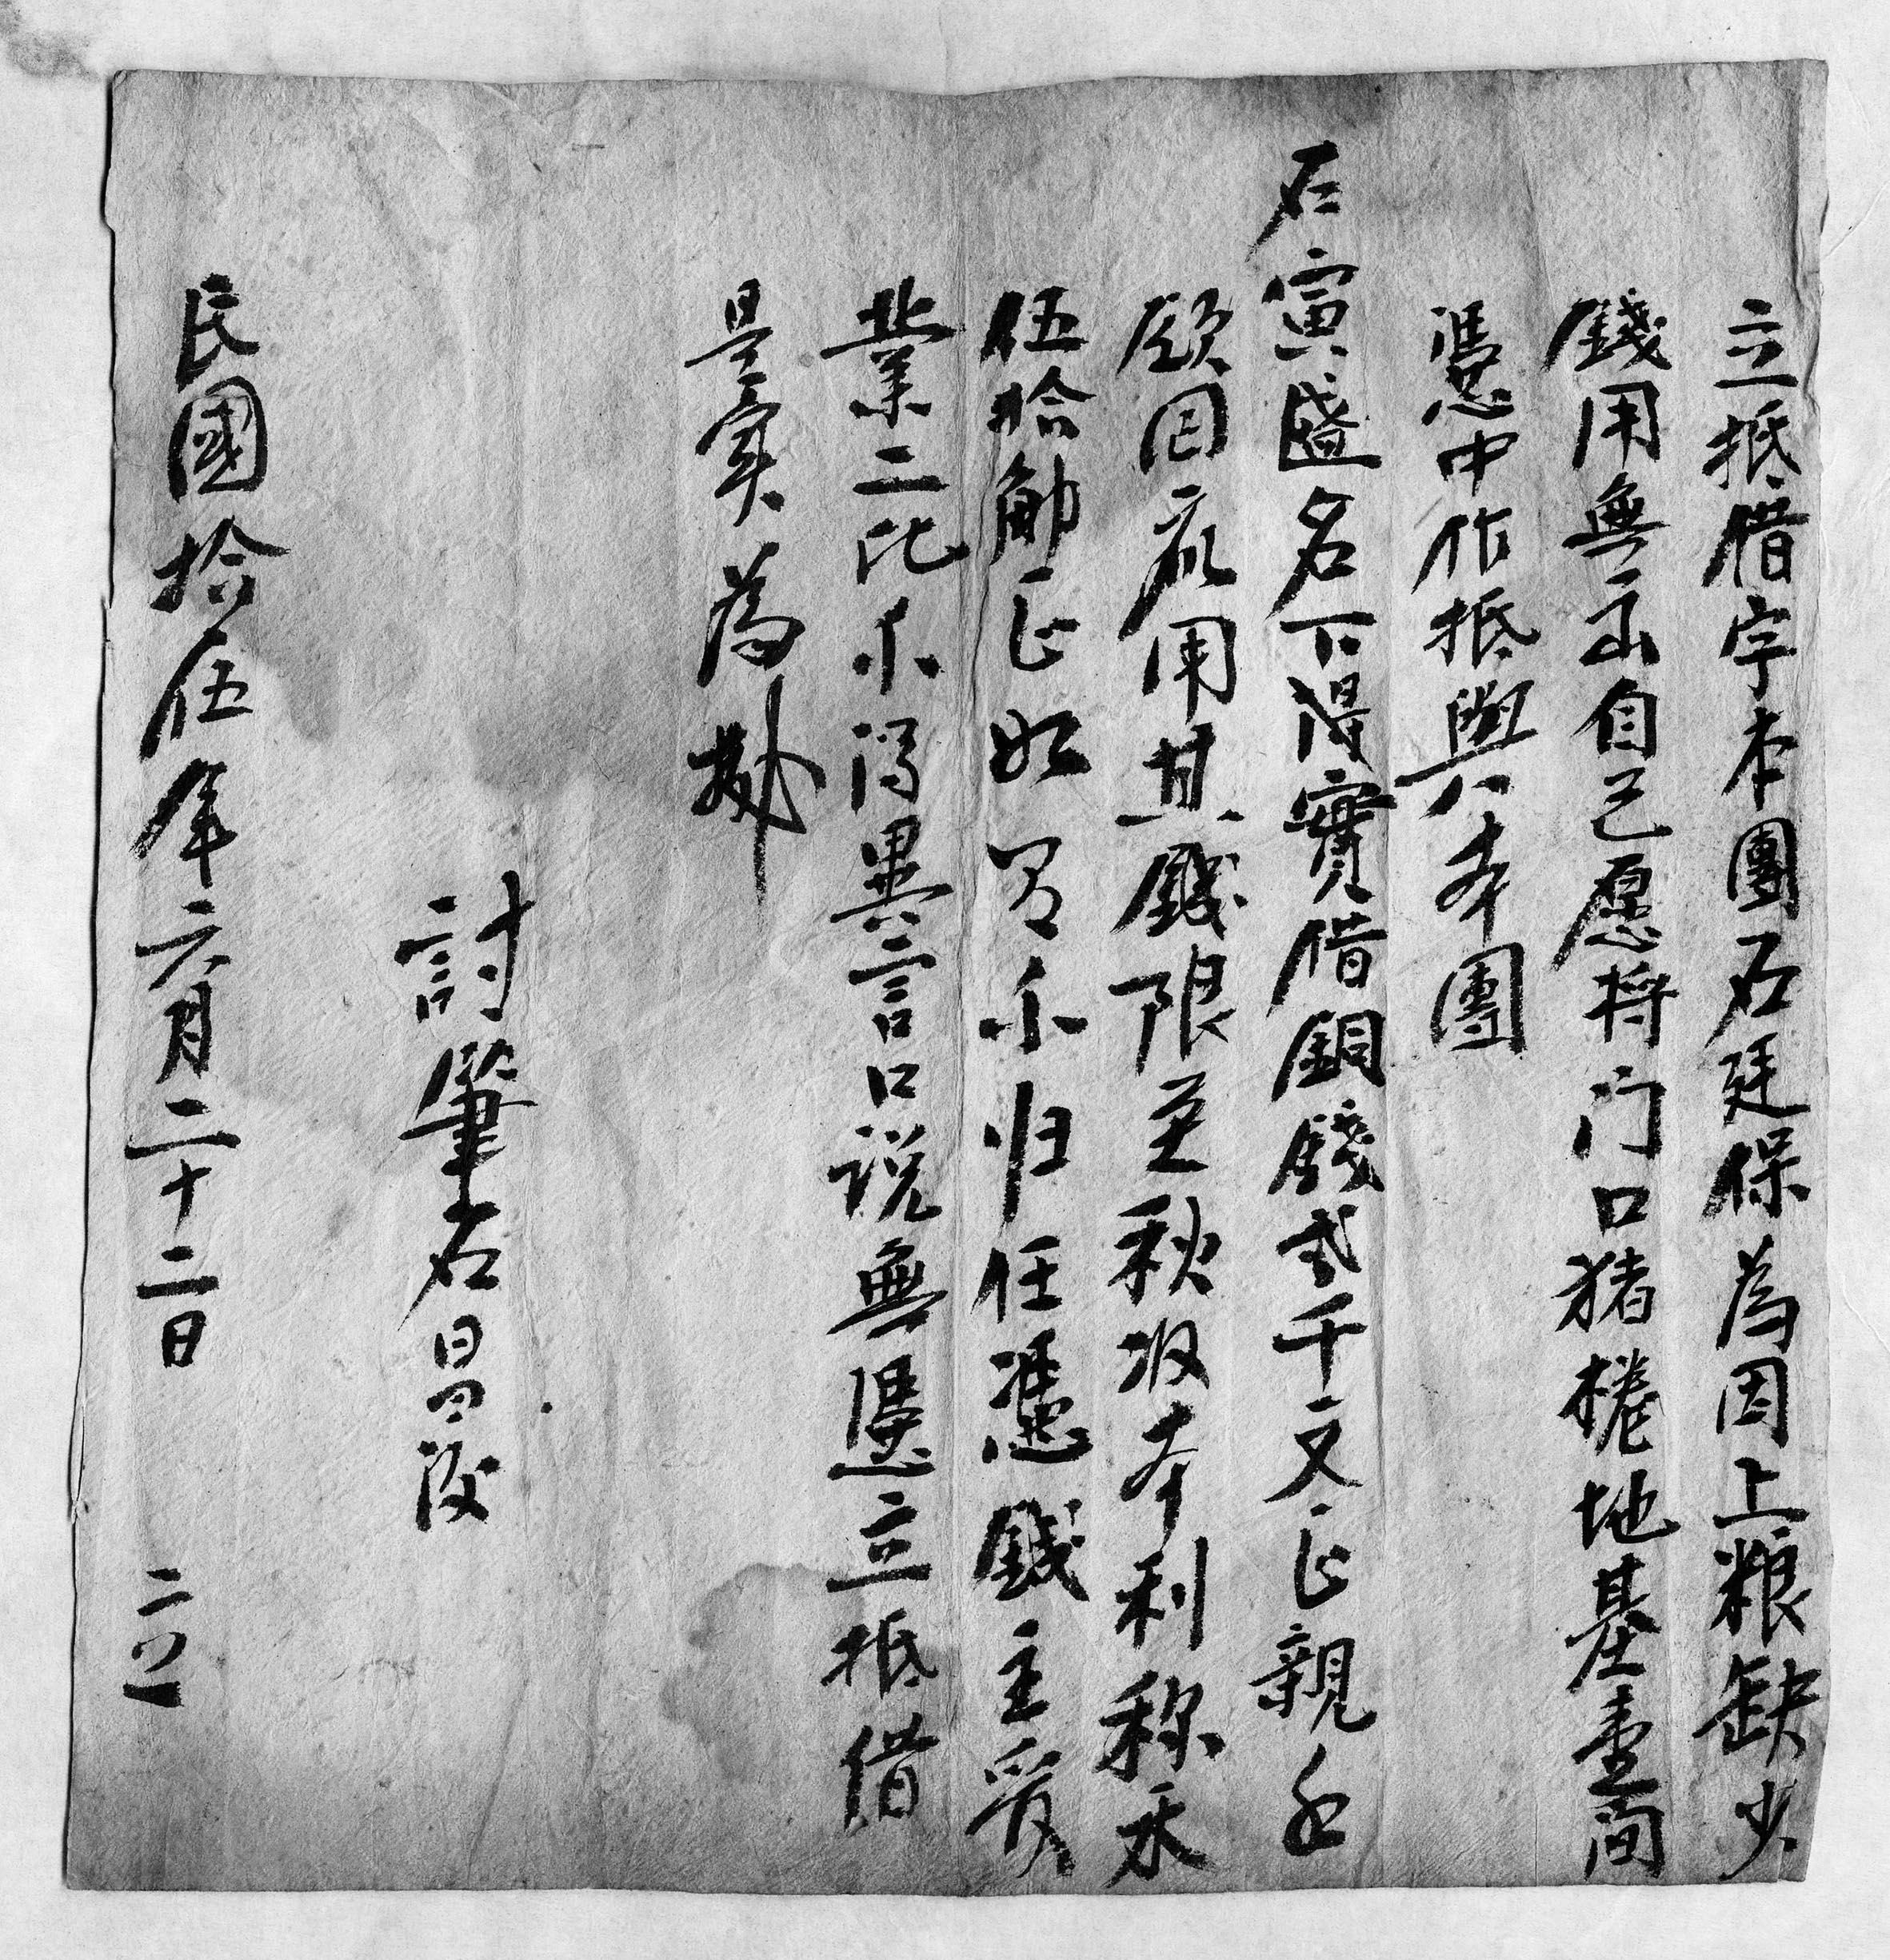 立抵借字本團石廷保為因上粮缺少
錢用無出自己愿将门口猪棬地基壹间
憑中作抵與本團
石寅
名下得實借銅錢弍千文正親手
領回家用其錢限至秋收本利称禾
伍拾觔正如若不归任憑錢主管
業二比不得異言口説無憑立抵借
是實為據
討筆石昌
民國拾伍年六月二十二日 立